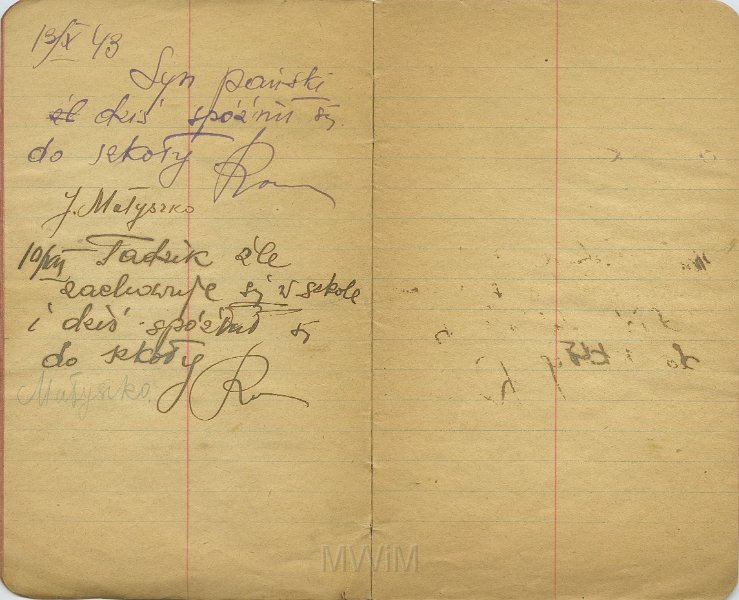 13/X 43
Syn pański
dziś spóźnił się
do szkoły
J. Małyszko
10/XII Tadzik źle
zachowuje się w szkole
i dziś spóźnił się
do szkoły
Małyszko
MWiM